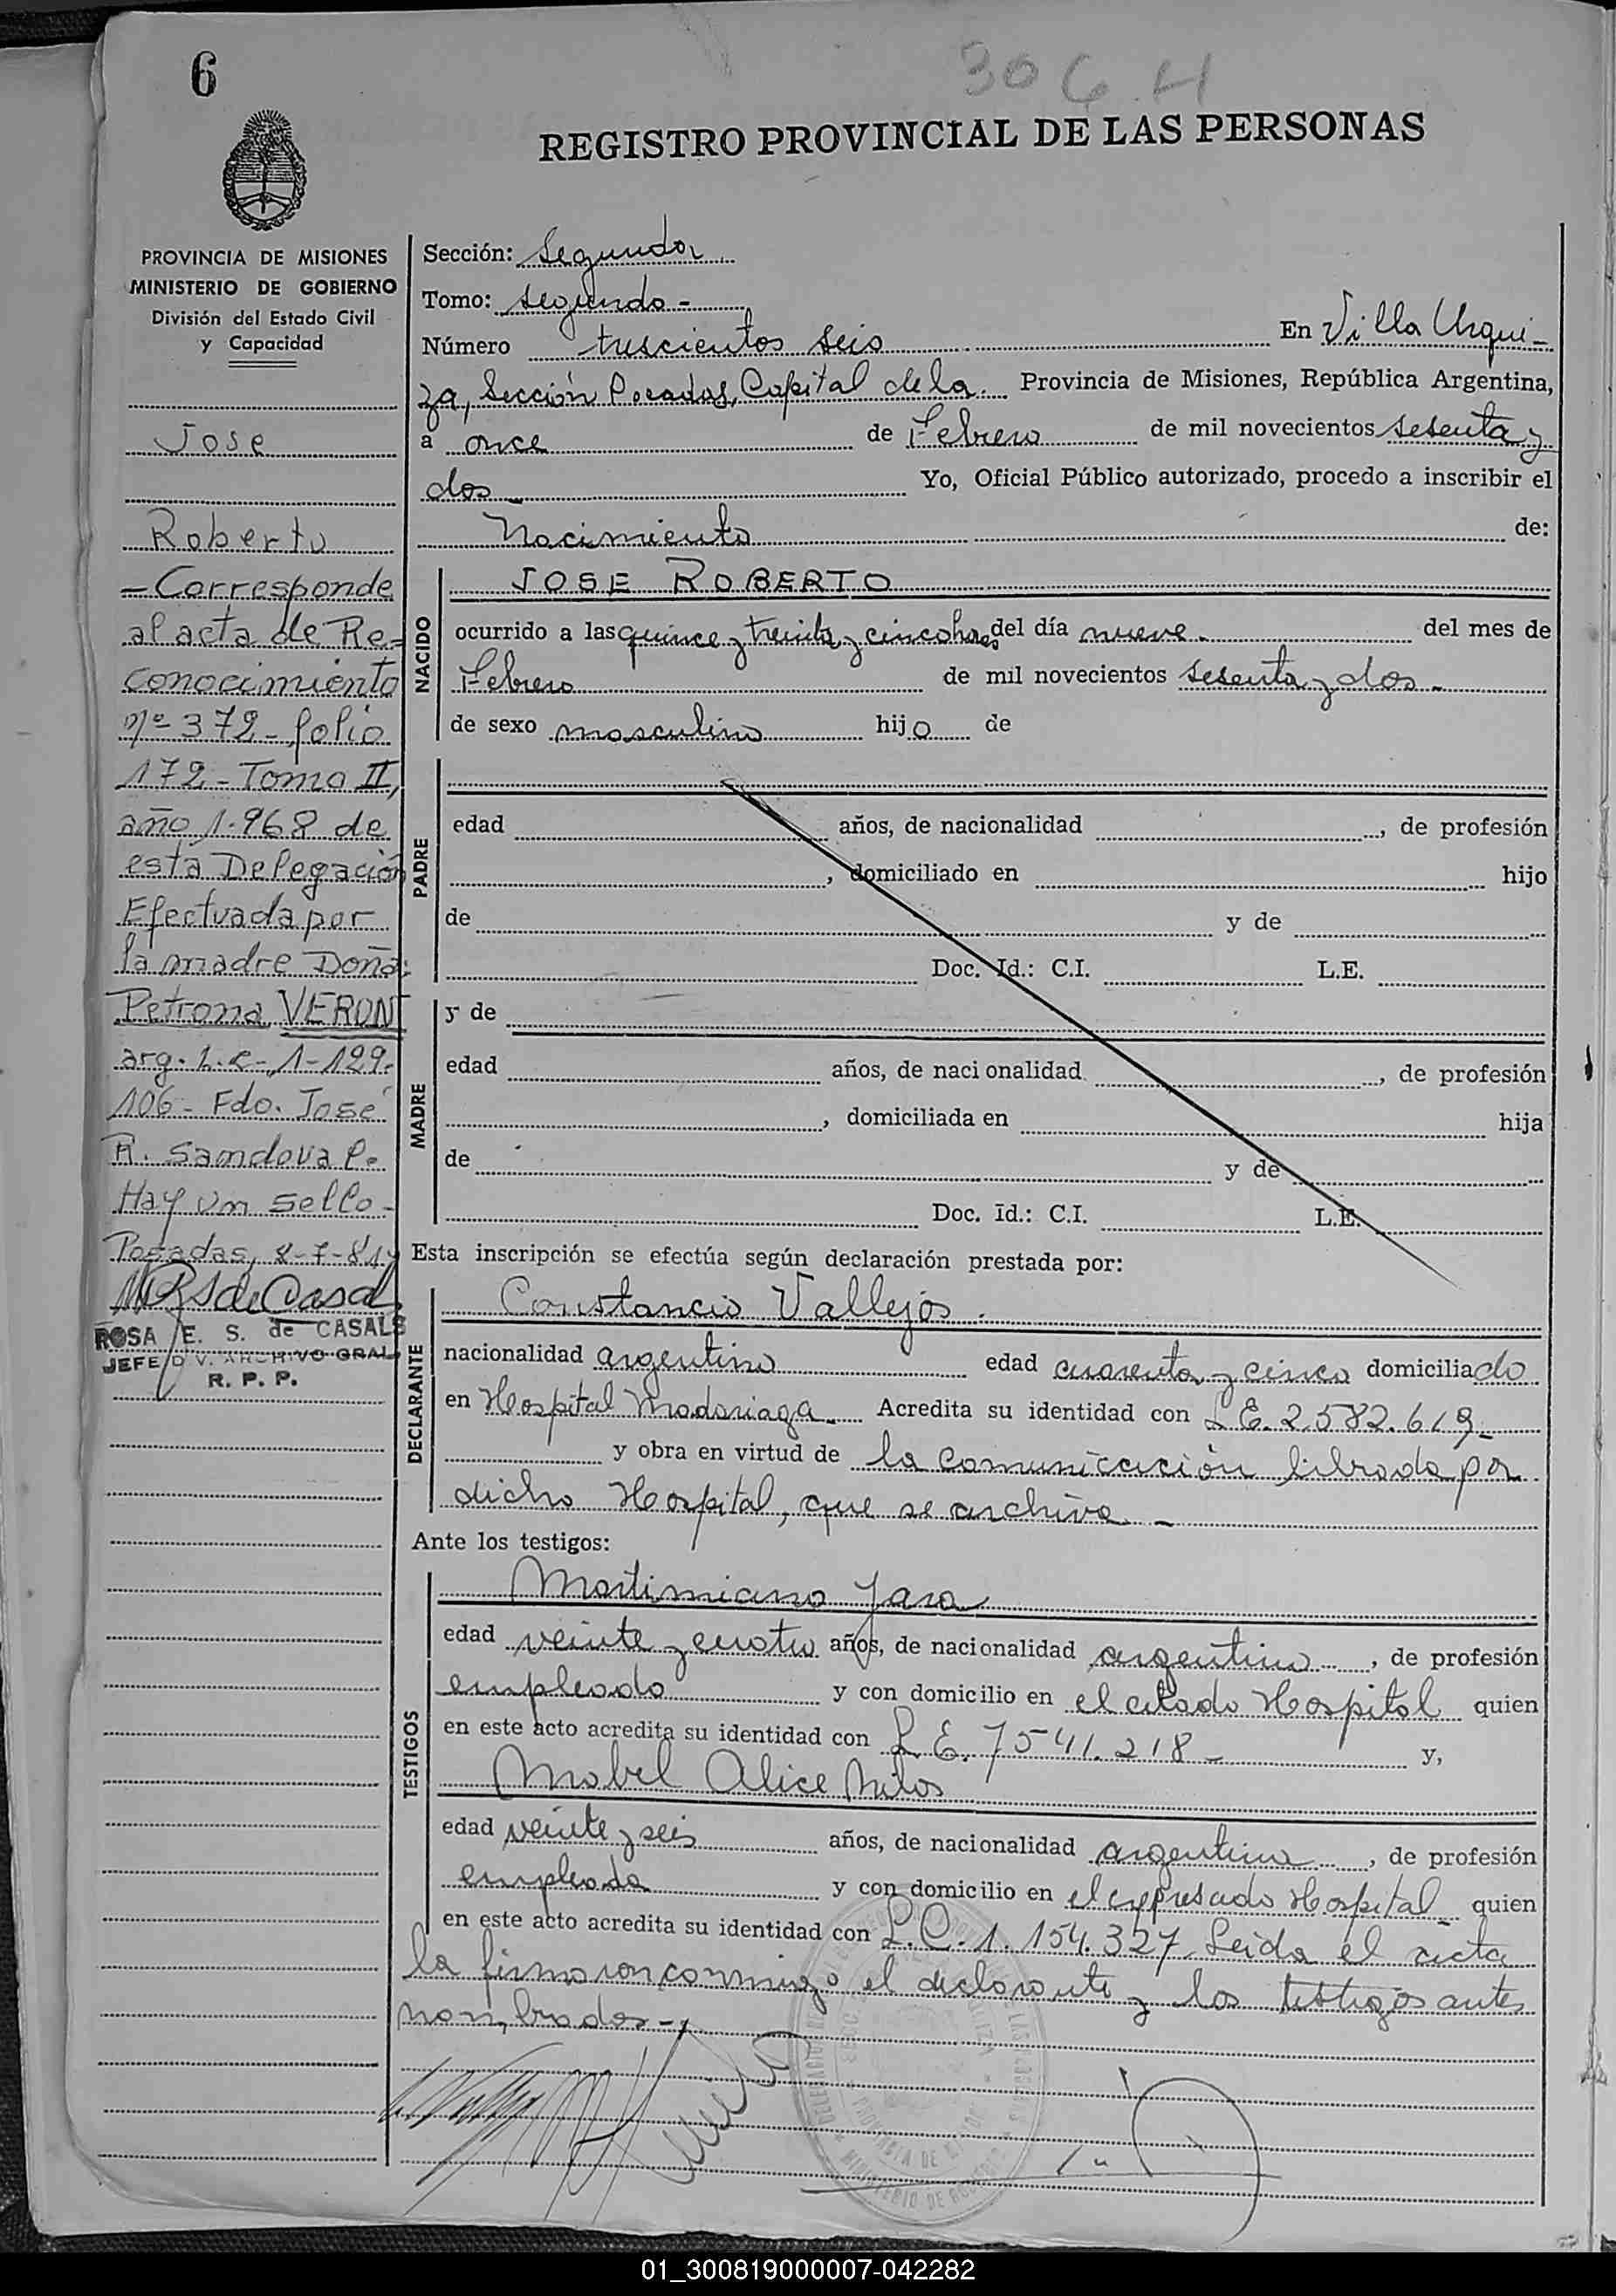 6
306 H
REGISTRO PROVINCIAL DE LAS PERSONAS
PROVINCIA DE MISIONES
MINISTERIO DE GOBIERNO
División del Estado Civil
y Capacidad
Jose
Roberto
- Corresponde
al acta de Re-
conocimiento
nº 372 - folio
172 - Tomo II,
año 1.968 de
esta Delegación
Efectuada por
la madre Doña:
Petrona VERON
arg. L.C. 1-129.
106 - Fdo. José
R. Sandoval.
Hay un sello -
Posadas, 8-7-81
ROSA E. S. de CASALS
JEFE DIV. ARCHIVO GRAL
R. P. P.
Sección: Segunda
Tomo: segundo -
Número trescientos seis En Villa Urqui-
za, Sección Posadas, Capital de la Provincia de Misiones, República Argentina,
a once de Febrero de mil novecientos sesenta y
dos - Yo, Oficial Público autorizado, procedo a inscribir el
Nacimiento de:
NACIDO
JOSE ROBERTO
ocurrido a las quince y treinta y cinco horas del día nueve - del mes de
Febrero de mil novecientos sesenta y dos -
de sexo masculino hijo de
PADRE
edad años, de nacionalidad , de profesión
, domiciliado en hijo
de y de
Doc. Id.: C.I. L.E.
MADRE
y de
edad años, de naci onalidad , de profesión
, domiciliada en hija
de y de
Doc. Id.: C.I. L.E.
Esta inscripción se efectúa según declaración prestada por:
DECLARANTE
Constancio Vallejos.
nacionalidad argentino edad cuarenta y cinco domiciliado
en Hospital Madariaga - Acredita su identidad con L.E. 2.582.619 -
y obra en virtud de la comunicación librada por
dicho Hospital, que se archiva -
Ante los testigos:
TESTIGOS
Martimiano Jara
edad veinte y cuatro años, de nacionalidad argentino , de profesión
empleado y con domicilio en el citado Hospital quien
en este acto acredita su identidad con L.E. 7541.218 - y,
Mabel Alice
edad veinte y seis años, de nacionalidad argentina , de profesión
empleada y con domicilio en el expresado Hospital quien
en este acto acredita su identidad con L.C. 1.154.327. Leída el acta
la firmaron conmigo el declarante y los testigos antes
nombrados -
01_300819000007-042282